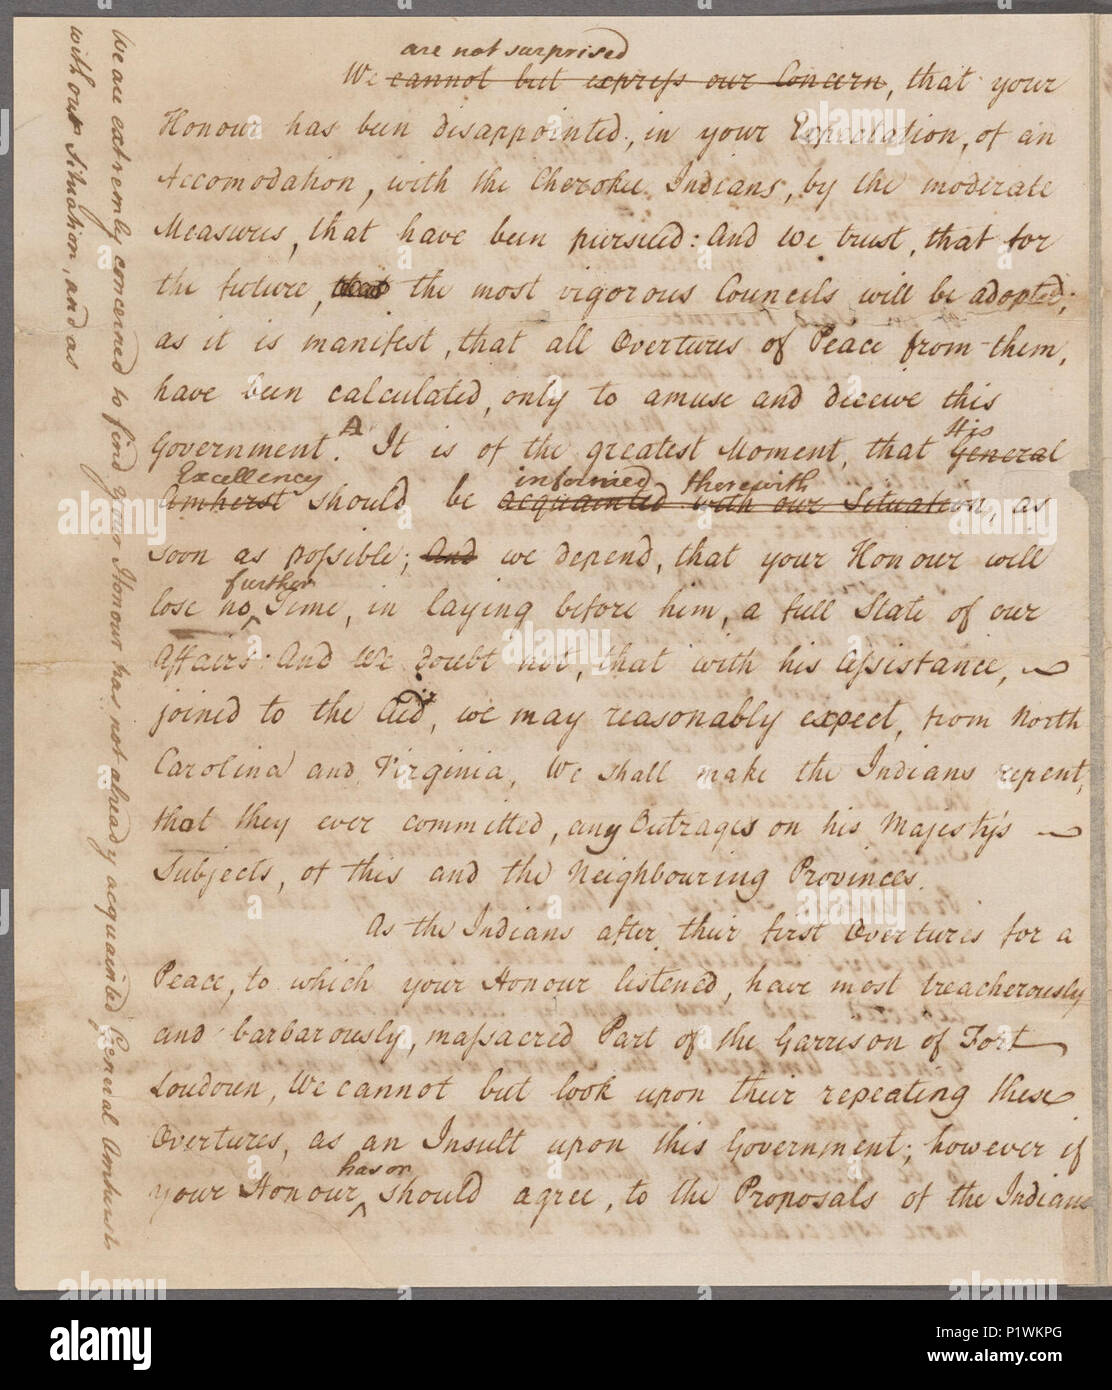 are not surprised
We cannot but express our Concern, that your
Honour has been disappointed, in your Expectation, of an
Accomodation, with the Cherokee Indians, by the moderate
Measures, that have been pursued: And we trust, that for
the future, that the most vigorous Councils will be adopted;
as it is manifest, that all Overtures of Peace from them,
have been calculated, only to amuse and deceive this
Government. A It is of the greatest Moment, that General
His
Excellency informed therewith
Amherst should be acquainted with our Situation, as
soon as possible; And we depend, that your Honour will
further
lose no ‸ Time, in laying before him, a full State of our
Affairs: And We doubt not, that with his Assistance,
joined to the Aid, we may reasonably expect, from North
Carolina and Virginia, We shall make the Indians repent,
that they ever committed, any Outrages on his Majesty's
Subjects, of this and the Neighbouring Provinces.
As the Indians after their first Overtures for a
Peace, to which your Honour listened, have most treacherously
and barbarously, massacred Part of the Garrison of Fort
Loudoun, We cannot but look upon their repeating these
Overtures, as an Insult upon this Government; however if
has or
your Honour ‸ should agree, to the Proposals of the Indians
We are extremly concerned to find your Honour has not already acquainted General Amherst
with our Situation, and as
alamy
Image ID: P1WKPG
www.alamy.com